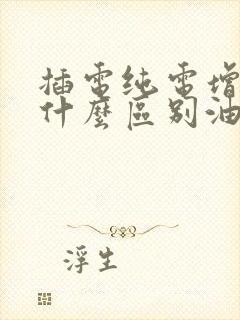 插電纯電增
什麼區别油
浮生